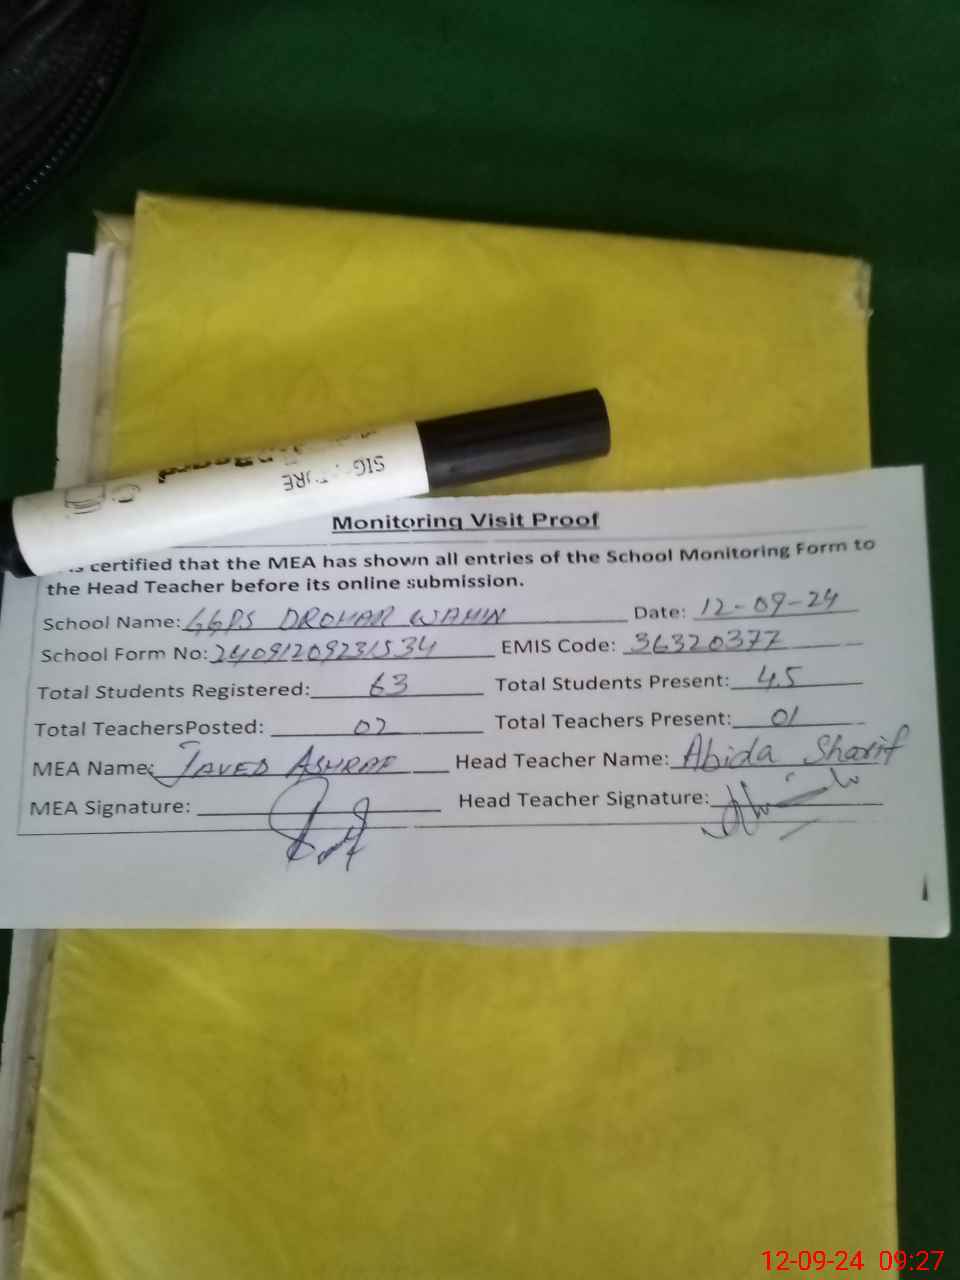 SIG
Monitoring Visit Proof
certified that the MEA has shown all entries of the School Monitoring Form to
the Head Teacher before its online submission.
School Name: GGPS DROHAR WAHIN Date: 12-09-24
School Form No: 24091209231534 EMIS Code: 36320377
Total Students Registered: 63 Total Students Present: 45
Total TeachersPosted: 02 Total Teachers Present: 01
MEA Name: JAVED ASHRAF Head Teacher Name: Abida Sharif
MEA Signature: Head Teacher Signature:
12-09-24 09:27